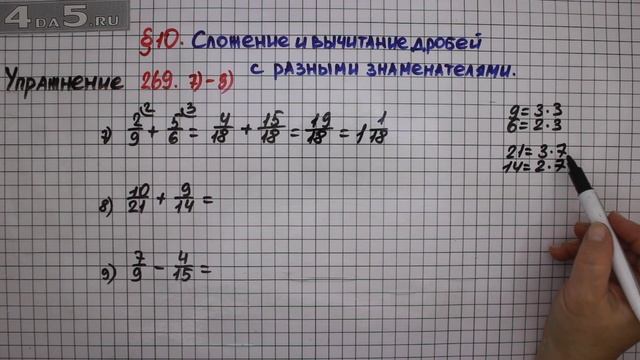 4DA5.RU
§10. Сложение и вычитание дробей
с разными знаменателями.
Упражнение 269. 7)-9)
7) 2/9 ² + 5/6 ³ = 4/18 + 15/18 = 19/18 = 1 1/18
8) 10/21 + 9/14 =
9) 7/9 - 4/15 =
9=3·3
6=2·3
21=3·7
14=2·7